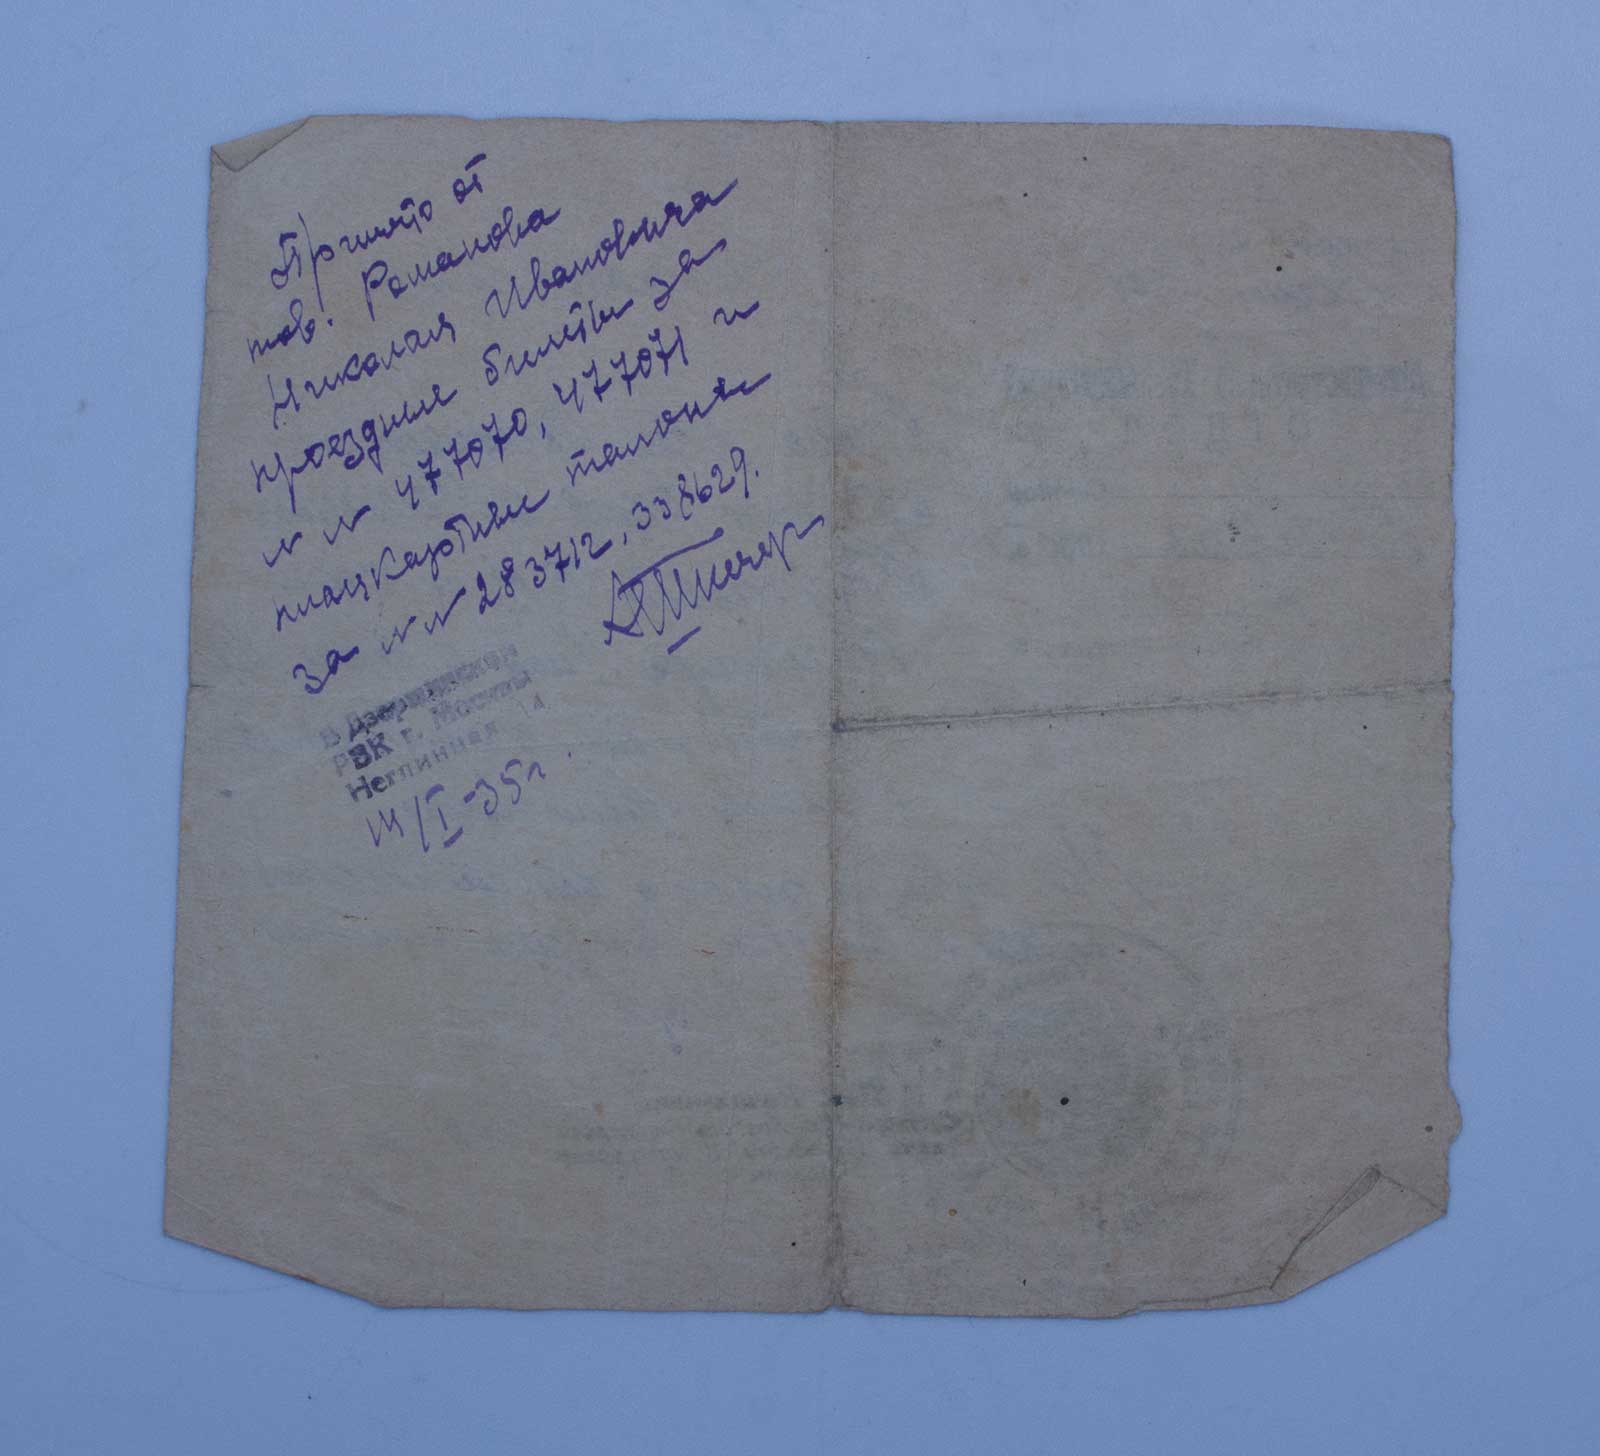 Принято от
тов. Романова
Николая Ивановича
проездные билеты за
N N 477070, 477071 и
плацкартные талоны
за N N 283712, 338629.
В Дзержинский
РВК г. Москвы
Неглинная 14
/I-35г.